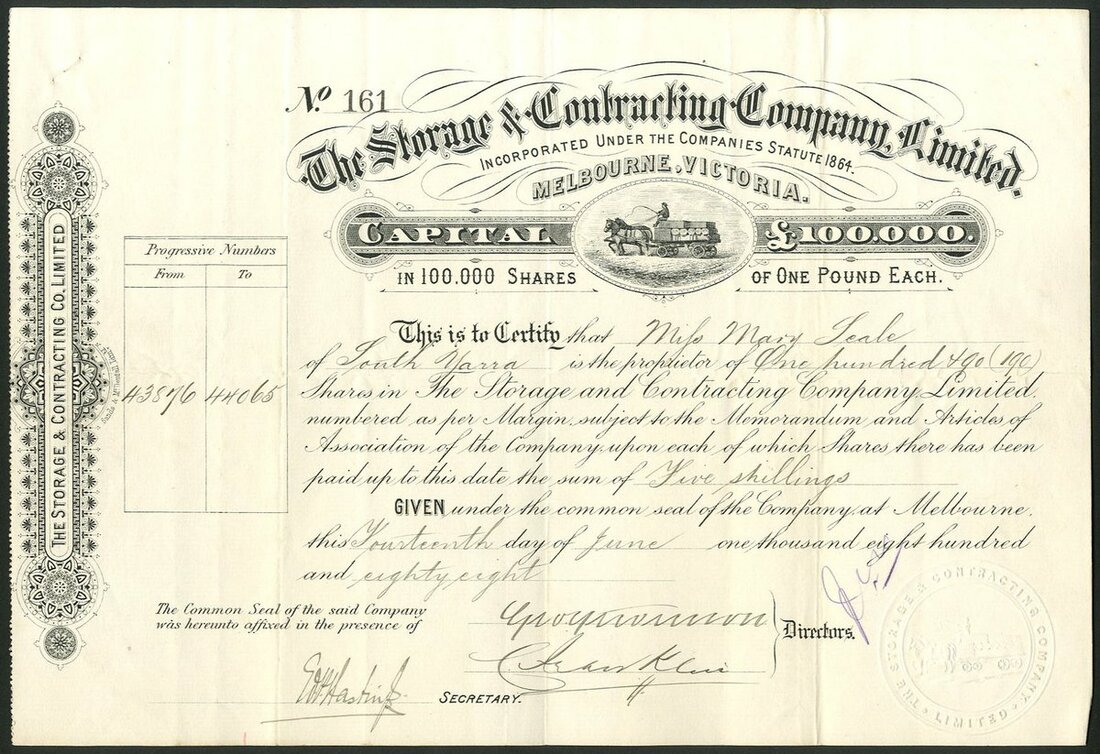 No. 161
The Storage & Contracting Company, Limited.
INCORPORATED UNDER THE COMPANIES STATUTE 1864.
MELBOURNE, VICTORIA.
CAPITAL £100.000.
IN 100.000 SHARES OF ONE POUND EACH.
THE STORAGE & CONTRACTING CO. LIMITED
Progressive Numbers
From To
43876 44065
This is to Certify that Miss Mary Seale
of South Yarra is the proprietor of One hundred & 90 (190)
Shares in The Storage and Contracting Company, Limited,
numbered as per Margin, subject to the Memorandum and Articles of
Association of the Company, upon each of which Shares there has been
paid up to this date the sum of Five shillings
GIVEN under the common seal of the Company, at Melbourne,
this Fourteenth day of June one thousand eight hundred
and eighty eight
The Common Seal of the said Company
was hereunto affixed in the presence of
Directors.
SECRETARY.
THE STORAGE & CONTRACTING COMPANY LIMITED